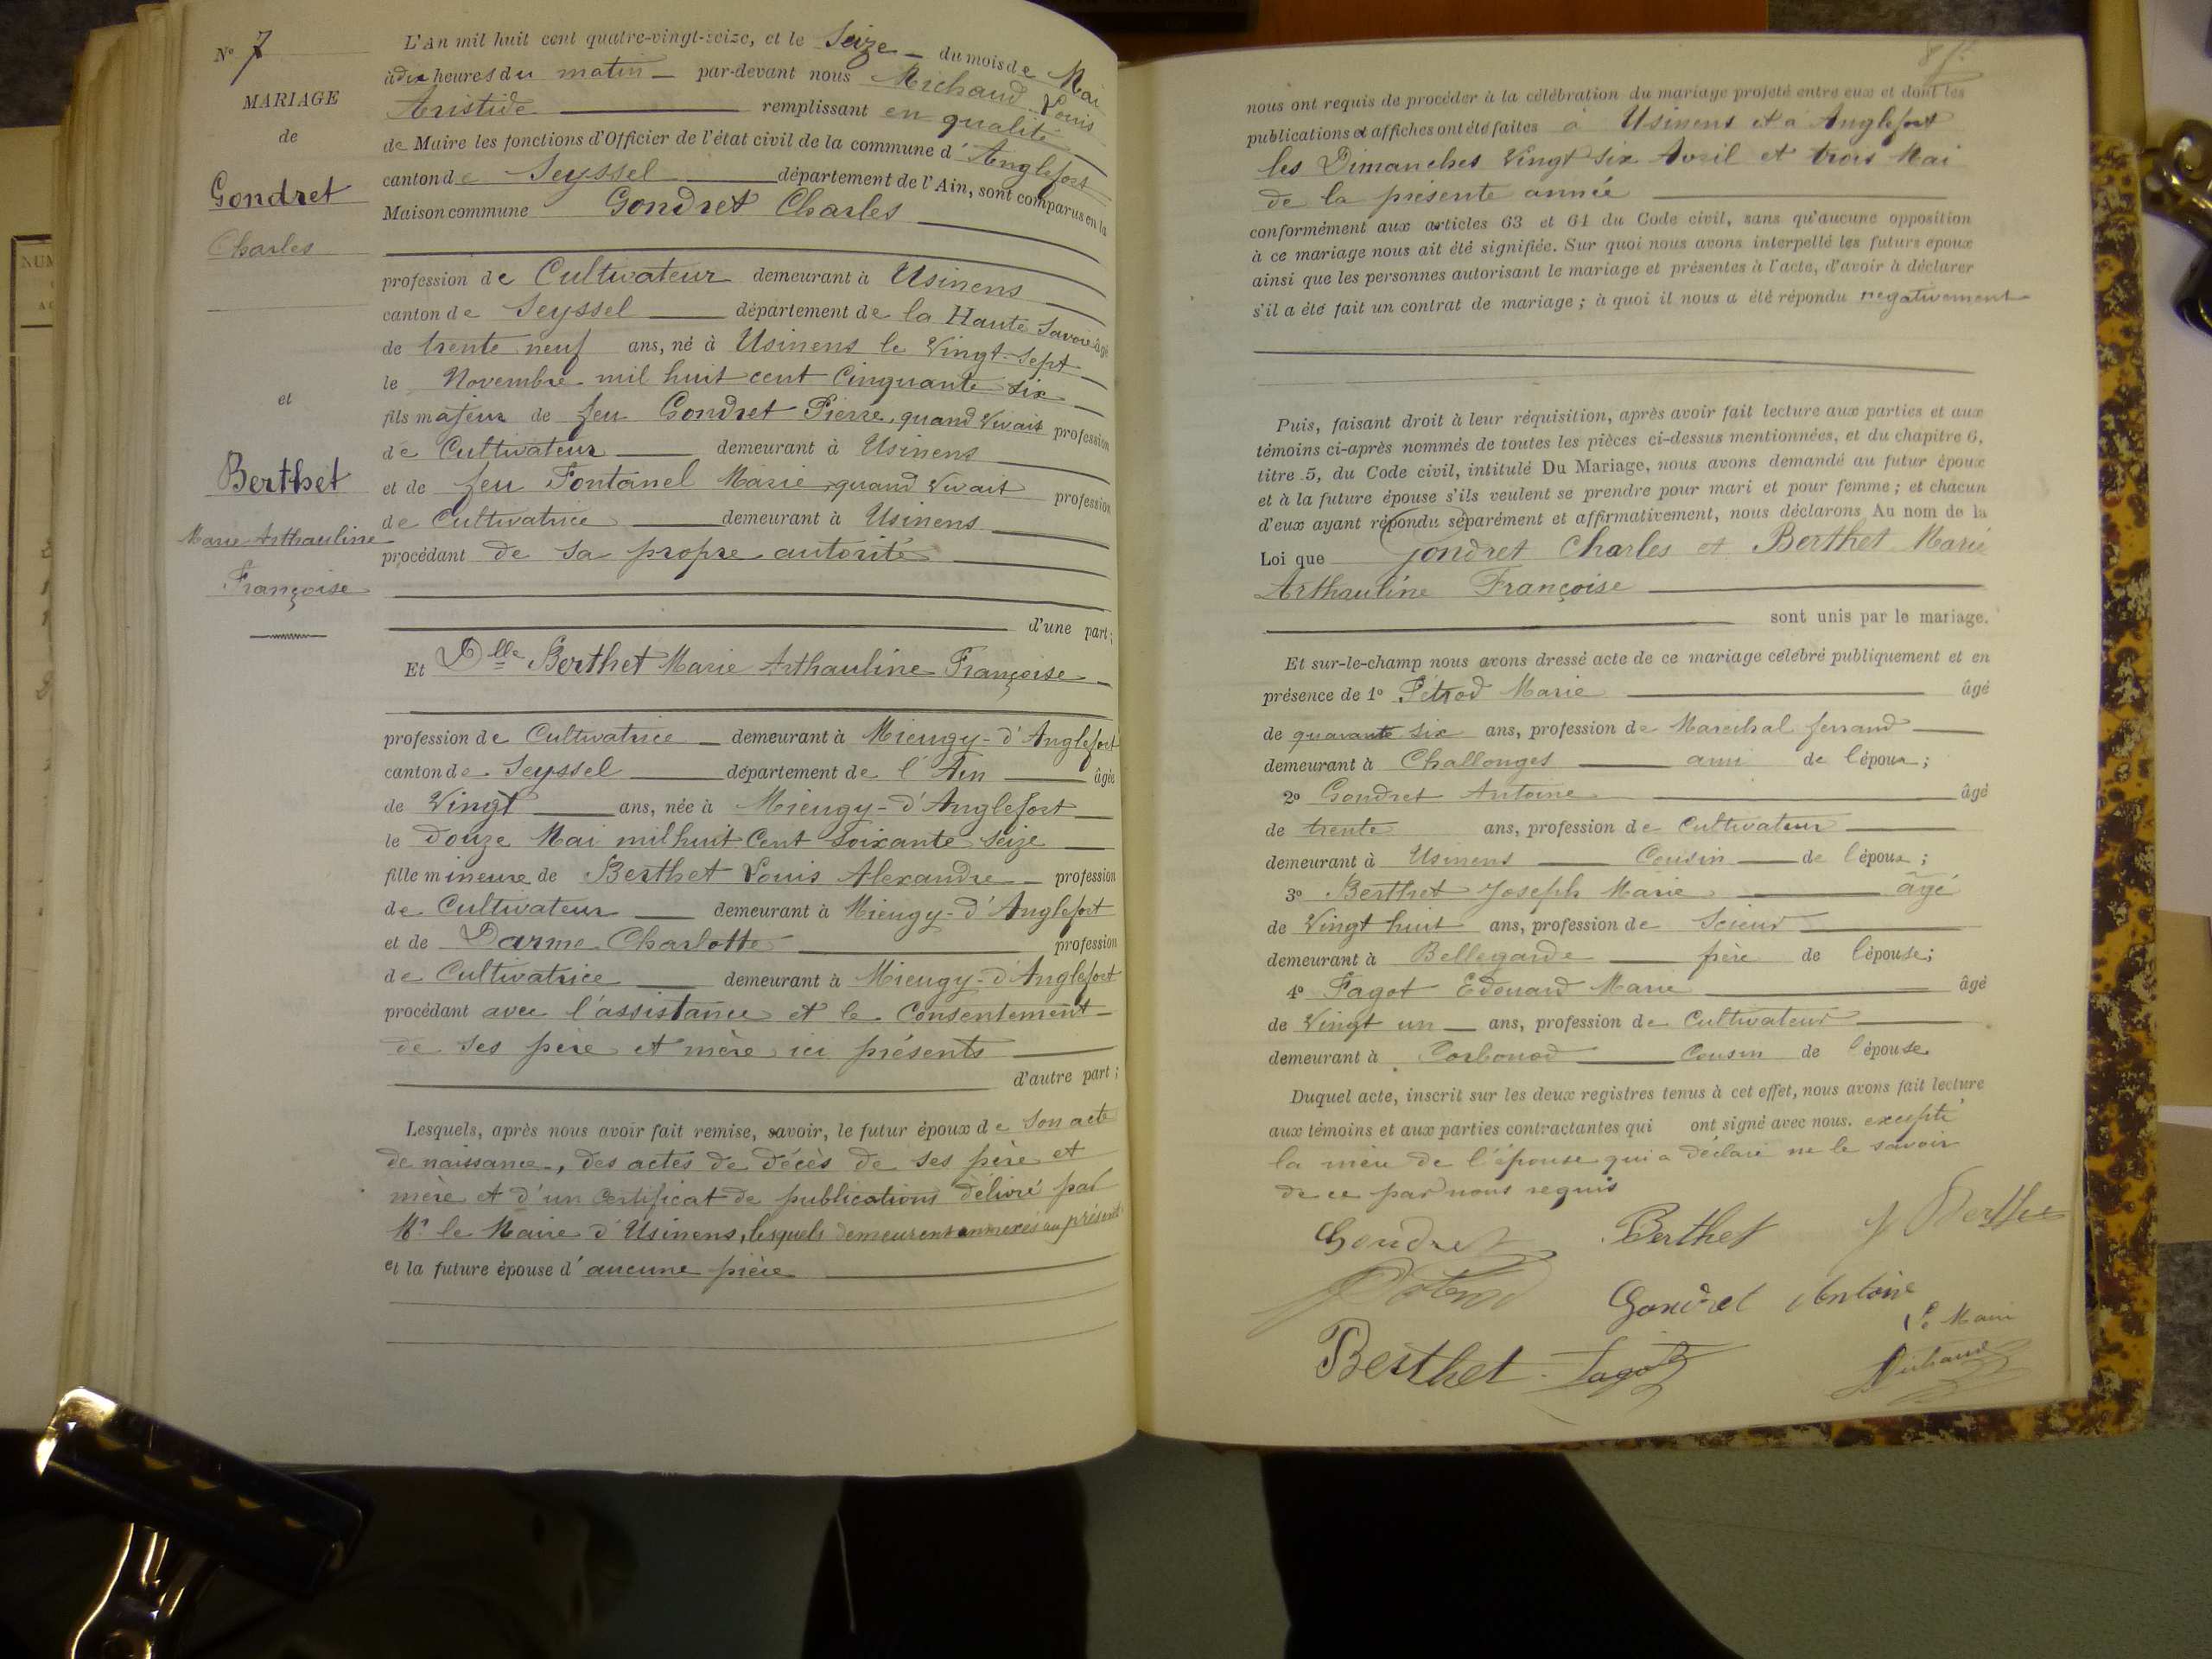 N° 7
MARIAGE
de
Gondret
Charles
et
Berthet
Marie Arthauline
Françoise
L'An mil huit cent quatre-vingt-seize, et le Seize du mois de Mai
à dix heures du matin par-devant nous Michaud Louis
Aristide remplissant en qualité
de Maire les fonctions d'Officier de l'état civil de la commune d'Anglefort
canton de Seyssel département de l'Ain, sont comparus en la
Maison commune Gondret Charles
profession de Cultivateur demeurant à Usinens
canton de Seyssel département de la Haute Savoie âgé
de trente neuf ans, né à Usinens le Vingt-Sept
le Novembre mil huit cent Cinquante six
fils majeur de feu Gondret Pierre, quand Vivait profession
de Cultivateur demeurant à Usinens
et de feu Fontanel Marie, quand Vivait profession
de Cultivatrice demeurant à Usinens
procédant de sa propre autorité
d'une part;
Et Dlle Berthet Marie Arthauline Françoise
profession de Cultivatrice demeurant à Mieugy-d'Anglefort
canton de Seyssel département de l'Ain âgée
de Vingt ans, née à Mieugy-d'Anglefort
le douze Mai mil huit Cent soixante seize
fille mineure de Berthet Louis Alexandre profession
de Cultivateur demeurant à Mieugy-d'Anglefort
et de Darme Charlotte profession
de Cultivatrice demeurant à Mieugy-d'Anglefort
procédant avec l'assistance et le Consentement
de ses père et mère ici présents
d'autre part;
Lesquels, après nous avoir fait remise, savoir, le futur époux de Son acte
de naissance, des actes de décès de ses père et
mère et d'un certificat de publications délivré par
Mr le Maire d'Usinens, lesquels demeurent annexés au présent
et la future épouse d'aucune pièce
87.
nous ont requis de procéder à la célébration du mariage projeté entre eux et dont les
publications et affiches ont été faites à Usinens et à Anglefort
les Dimanches Vingt six Avril et trois Mai
de la présente année
conformément aux articles 63 et 64 du Code civil, sans qu'aucune opposition
à ce mariage nous ait été signifiée. Sur quoi nous avons interpellé les futurs époux
ainsi que les personnes autorisant le mariage et présentes à l'acte, d'avoir à déclarer
s'il a été fait un contrat de mariage; à quoi il nous a été répondu negativement
Puis, faisant droit à leur réquisition, après avoir fait lecture aux parties et aux
témoins ci-après nommés de toutes les pièces ci-dessus mentionnées, et du chapitre 6,
titre 5, du Code civil, intitulé Du Mariage, nous avons demandé au futur époux
et à la future épouse s'ils veulent se prendre pour mari et pour femme; et chacun
d'eux ayant répondu séparément et affirmativement, nous déclarons Au nom de la
Loi que Gondret Charles et Berthet Marie
Arthauline Françoise
sont unis par le mariage.
Et sur-le-champ nous avons dressé acte de ce mariage célébré publiquement et en
présence de 1° Pétrod Marie âgé
de quarante six ans, profession de Maréchal ferrand
demeurant à Challonges ami de l'époux;
2° Gondret Antoine âgé
de trente ans, profession de Cultivateur
demeurant à Usinens Cousin de l'époux;
3° Berthet Joseph Marie âgé
de Vingt huit ans, profession de Scieur
demeurant à Bellegarde frère de l'épouse;
4° Fagot Edouard Marie âgé
de Vingt un ans, profession de Cultivateur
demeurant à Corbonod Cousin de l'épouse
Duquel acte, inscrit sur les deux registres tenus à cet effet, nous avons fait lecture
aux témoins et aux parties contractantes qui ont signé avec nous. excepté
la mère de l'épouse qui a déclaré ne le savoir
de ce par nous requis
Gondret Berthet J Berthet
Pétrod Gondret Antoine
Le Maire
Berthet Fagot Michaud